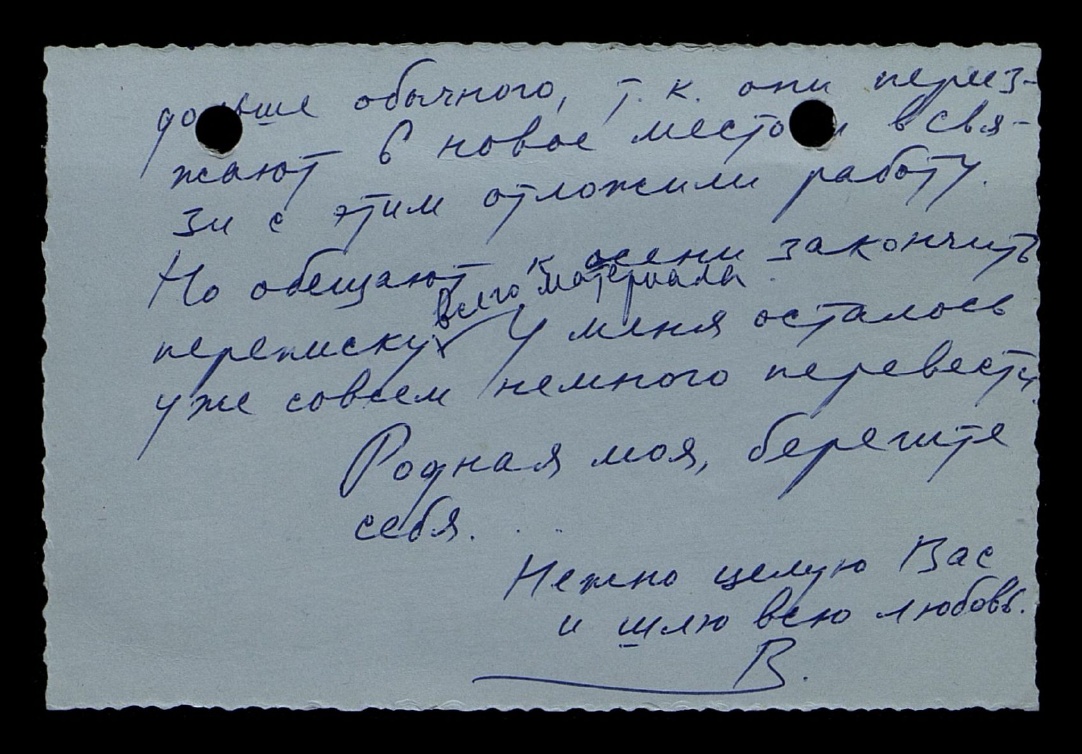 дольше обычного, т. к. они переез-
жают в новое место и в свя-
зи с этим отложили работу.
Но обещают к осени закончить
всего материала.
переписку У меня осталось
уже совсем немного перевести.
Родная моя, берегите
себя.
Нежно целую Вас
и шлю всю любовь.
В.